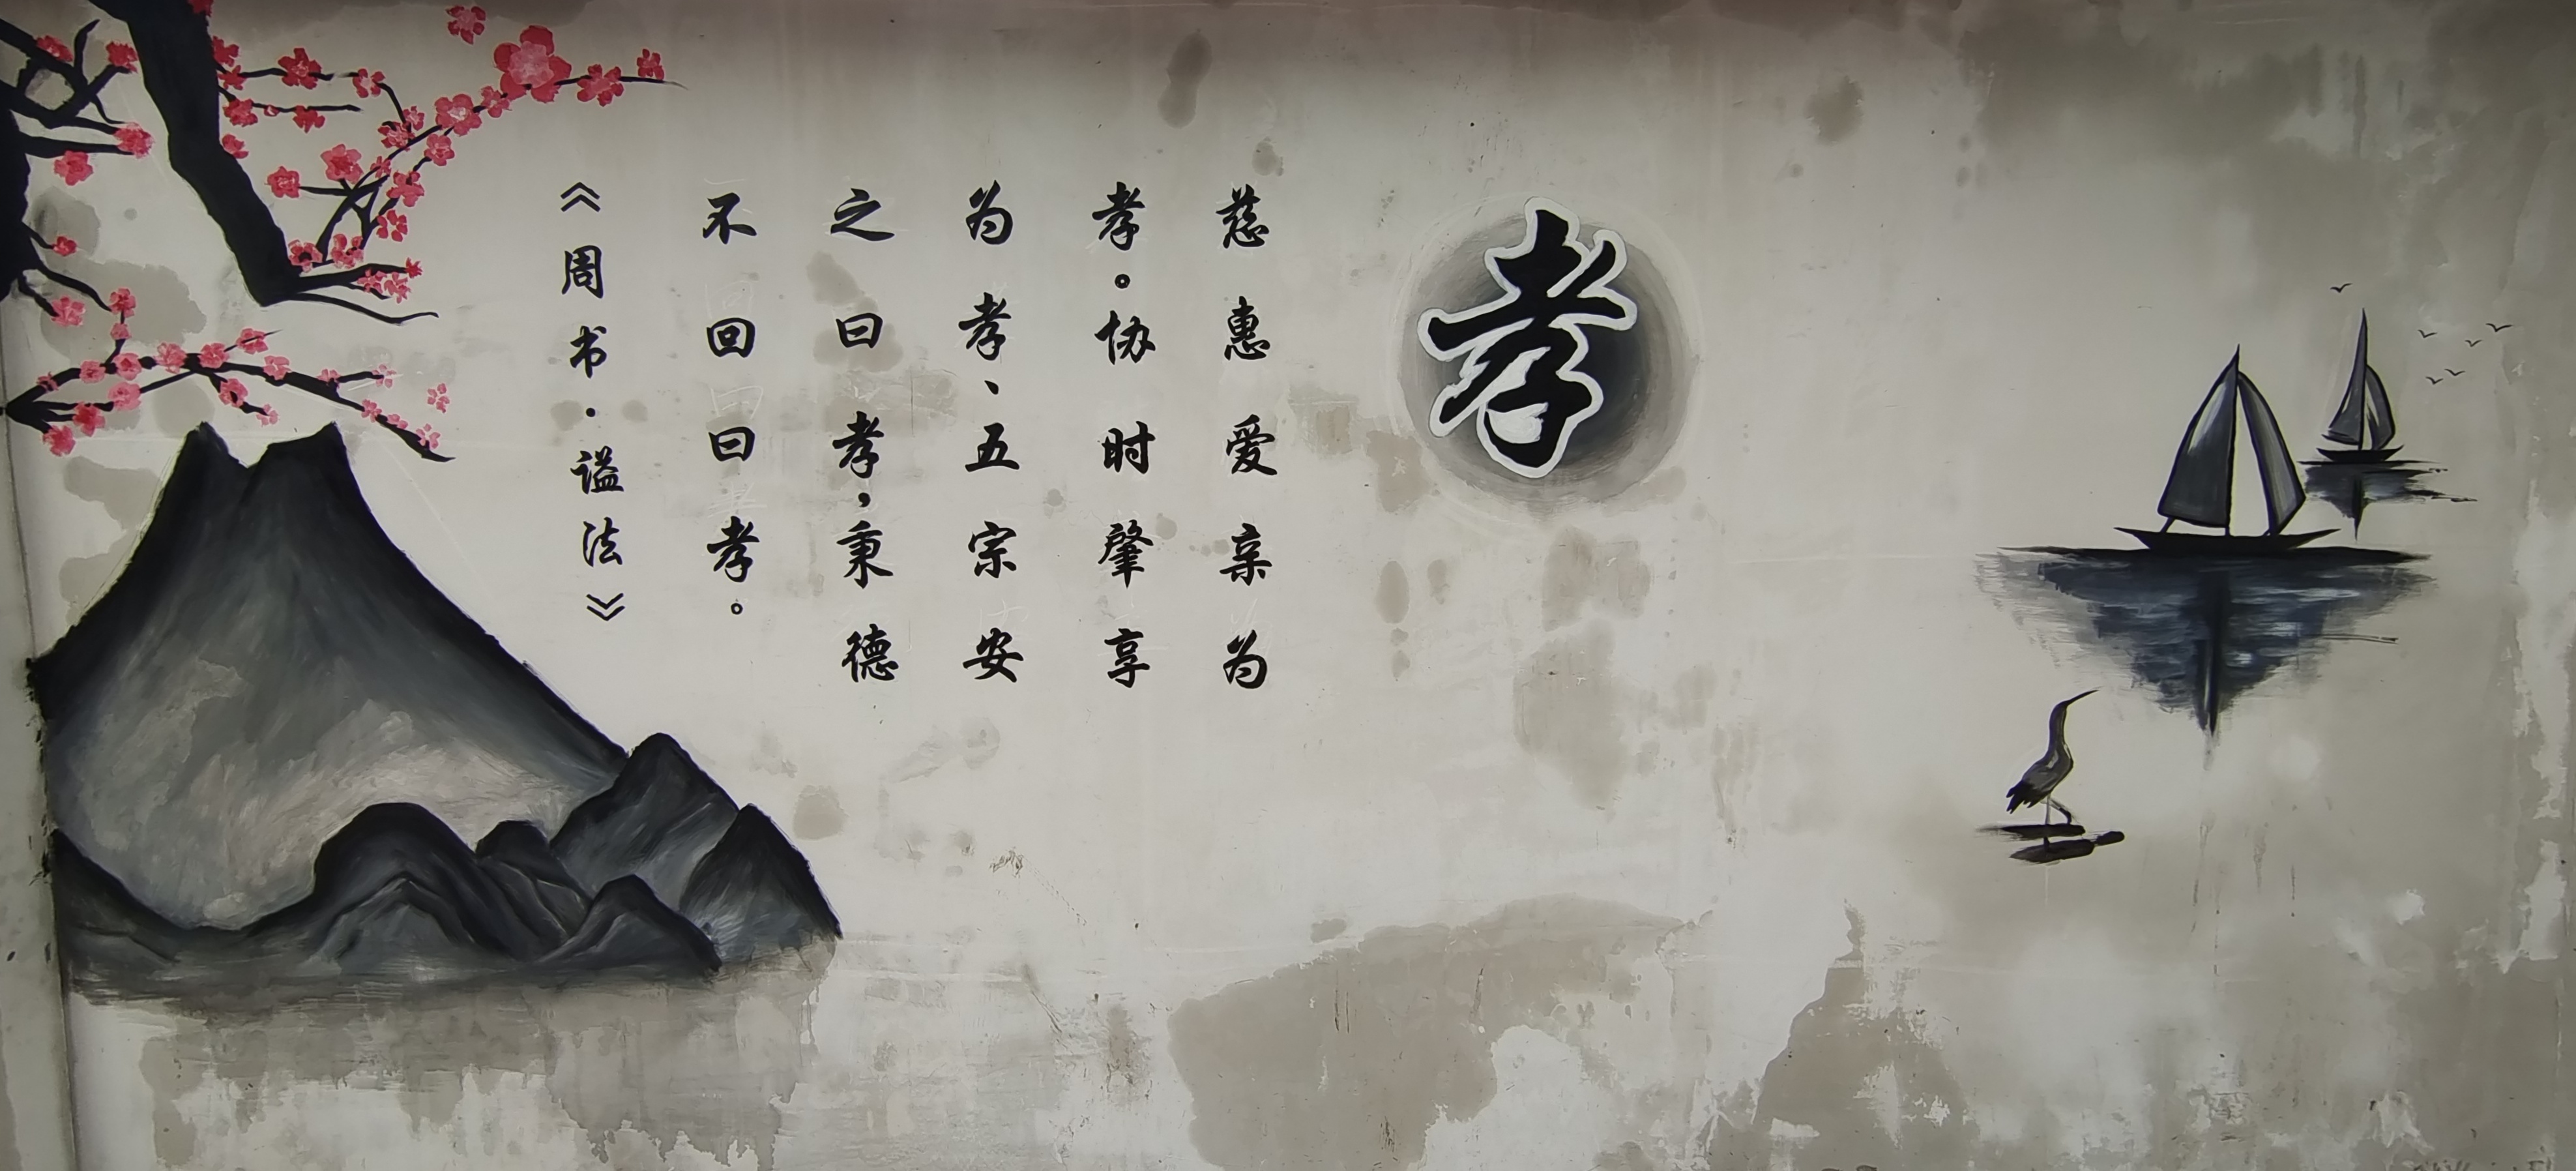 孝
慈惠爱亲为
孝。协时肇享
为孝、五宗安
之曰孝，秉德
不回曰孝。
《周书·谥法》